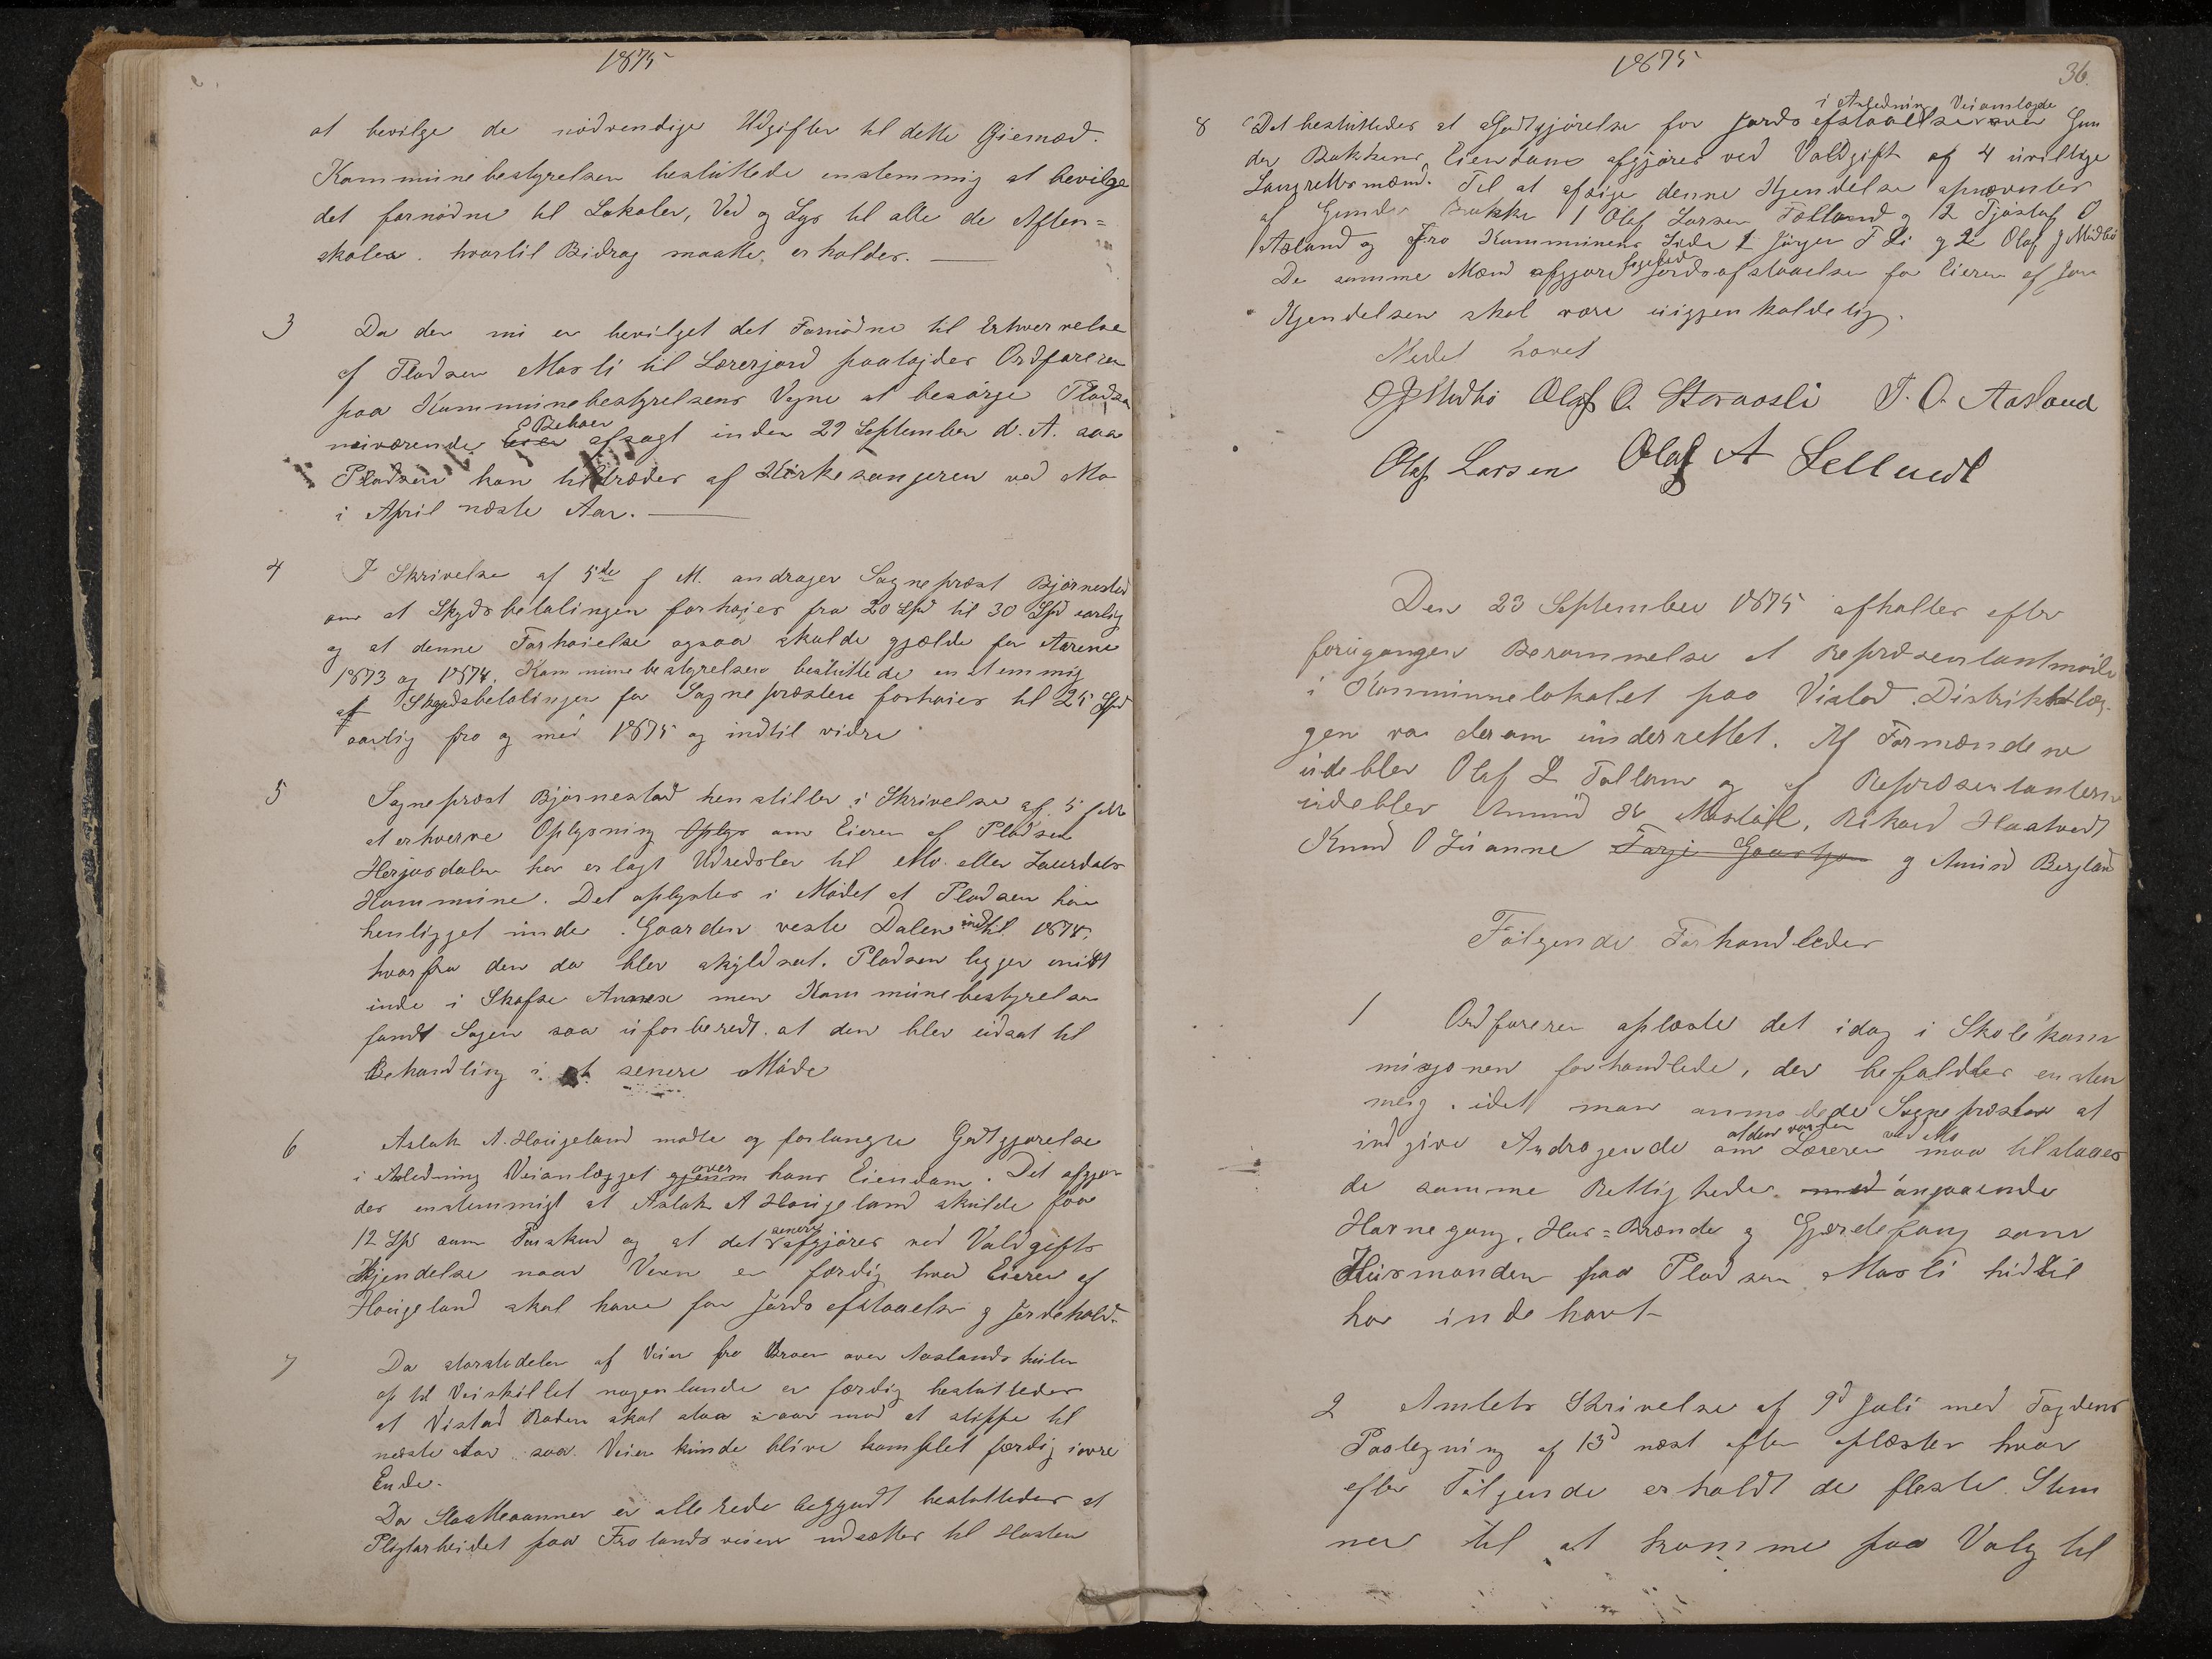 1875
at bevilge de nödvendige Udgifter til dette Øiemed.
Kommunebestyrelsen besluttede enstemmig at bevilge
det fornödne til Lokaler, Ved og Lys til alle de Aften=
skoler. hvortil Bidrag maatte erholdes.
3 Da der nu er bevilget det Fornödne til Erhvervelse
af Pladsen Mosli til Lærerjord paalagdes Ordföreren
paa Kommunebestyrelsens Vegne at besörge Pladsen
nuværende Eier Beboer afsagt inden 29 September d. A. saa
Pladsen kan tiltrædes af Kirkesangeren ved Mo
i April næste Aar.
4 I Skrivelse af 5de f M. andrager Sognepræst Björnestad
om at Skydsbetalingen forhöies fra 20 Spd til 30 Spd aarlig
og at denne Forhöielse ogsaa skulde gjælde for Aarene
1873 og 1874. Kommunebestyrelsen besluttede enstemmig
at Skydsbetalingen for Sognepræsten forhöies til 25 Spd
aarlig fra og med 1875 og indtil videre
5 Sognepræst Björnestad henstiller i Skrivelse af 5 f M
at erhverve Oplysning Oplys om Eieren af Pladsen
Herjusdalen har erlagt Udredsler til Mo eller Laurdals
Kommune. Det oplystes i Mödet at Pladsen har
henligget under Gaarden vestre Dalen indtil 1874,
hvorfra den da blev skyldsat. Pladsen ligger midt
inde i Skafse Annex men Kommunebestyrelsen
fandt Sagen saa uforberedt at den blev udsat til
Behandling i et senere Möde
6 Aslak A. Haugeland mödte og forlangte Godtgjörelse
i Anledning Veianlægget gjennem over hans Eiendom. Det afgjor
des enstemmigt at Aslak A Haugeland skulde faa
12 Spd som Forskud og at det senere afgjöres ved Voldgifts
Kjendelse naar Veien er færdig hvad Eieren af
Haugeland skal have for Jordafstaaelse og Gjerdehold.
7 Da störstedelen af Veien fra Broen over Aaslands
op til Veiskillet nogenlunde er færdig besluttedes
at Vistad Roden skal staa iaar mod at slippe til
næste Aar saa Veien kunde blive komplet færdig i övre
Ende.
Da Slaatteaannen er allerede begyndt besluttedes at
Pligtarbeidet paa Frolandsveien udsættes til Hösten
1875
36.
8 Det besluttedes at Godtgjörelse for Jordafstaaelse i Anledning Veianlægde over Gun
der Bakkens Eiendom afgjöres ved Voldgift af 4 uvillige
Laugrettesmænd. Til at afsige denne Kjendelse opnævntes
af Gunder Bakke 1 Olaf Larsen Felland og 2 Tjöstolf O
Aasland og fra Kommunens Side 1 Jörgen T Li og 2 Olaf J Midbö
De samme Mænd afgjöre ligeledes Jordafstaaelsen for Eieren af
Kjendelsen skal være uigjenkaldelig.
Mödet hævet
O J Midbö Olaf O. Storaasli T. O. Aasland
Olaf Larsen Olaf A Selland
Den 23 September 1875 afholdtes efter
forugangen Berammelse et Repræsentantmöde
i Kommunelokalet paa Vistad. Distriktslæ-
gen var derom underrettet. Af Formændene
udeblev Olaf L Felland og af Repræsentanterne
udeblev Amund Mostöl, Rikard Haatvedt
Knud O Tarje og Amund Bergland
Fölgende Forhandledes
1 Ordföreren oplæste det idag i Skolekom
misjonen forhandlede, der befaldtes enstem
mig. idet man anmodede Sognepræsten at
indgive Andragende om at den vordende Læreren ved Mo maa tilstaaes
de samme Rettigheder med angaaende
Havnegang, Hus=Brænde og Gjærdefang som
Husmanden paa Pladsen Mosli hidtil
har indehavt
2 Amtets Skrivelse af 9d Juli med Fogdens
Paategning af 13d næst efter oplæstes hvor
efter Fölgende erholdt de fleste Stem
mer til at komme paa Valg til